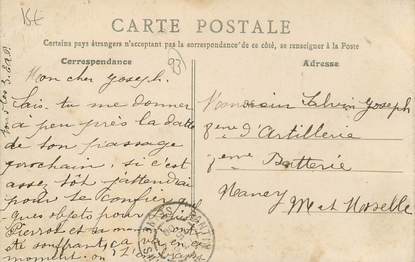 15€
CARTE POSTALE
Certains pays étrangers n'acceptant pas la correspondance de ce côté, se renseigner à la Poste
Correspondance
93
Mon cher Joseph.
Sais-tu me donner
à peu près la datte
de ton passage
prochain, si c'est
assez tôt j'attendrai
pour te confier quel
ques objets pour
Pierrot et sa maman ont
été souffrants ça va en ce
moment, on
Adresse
Monsieur Joseph
8eme d'Artillerie
7eme Batterie
Nancy
M et Moselle